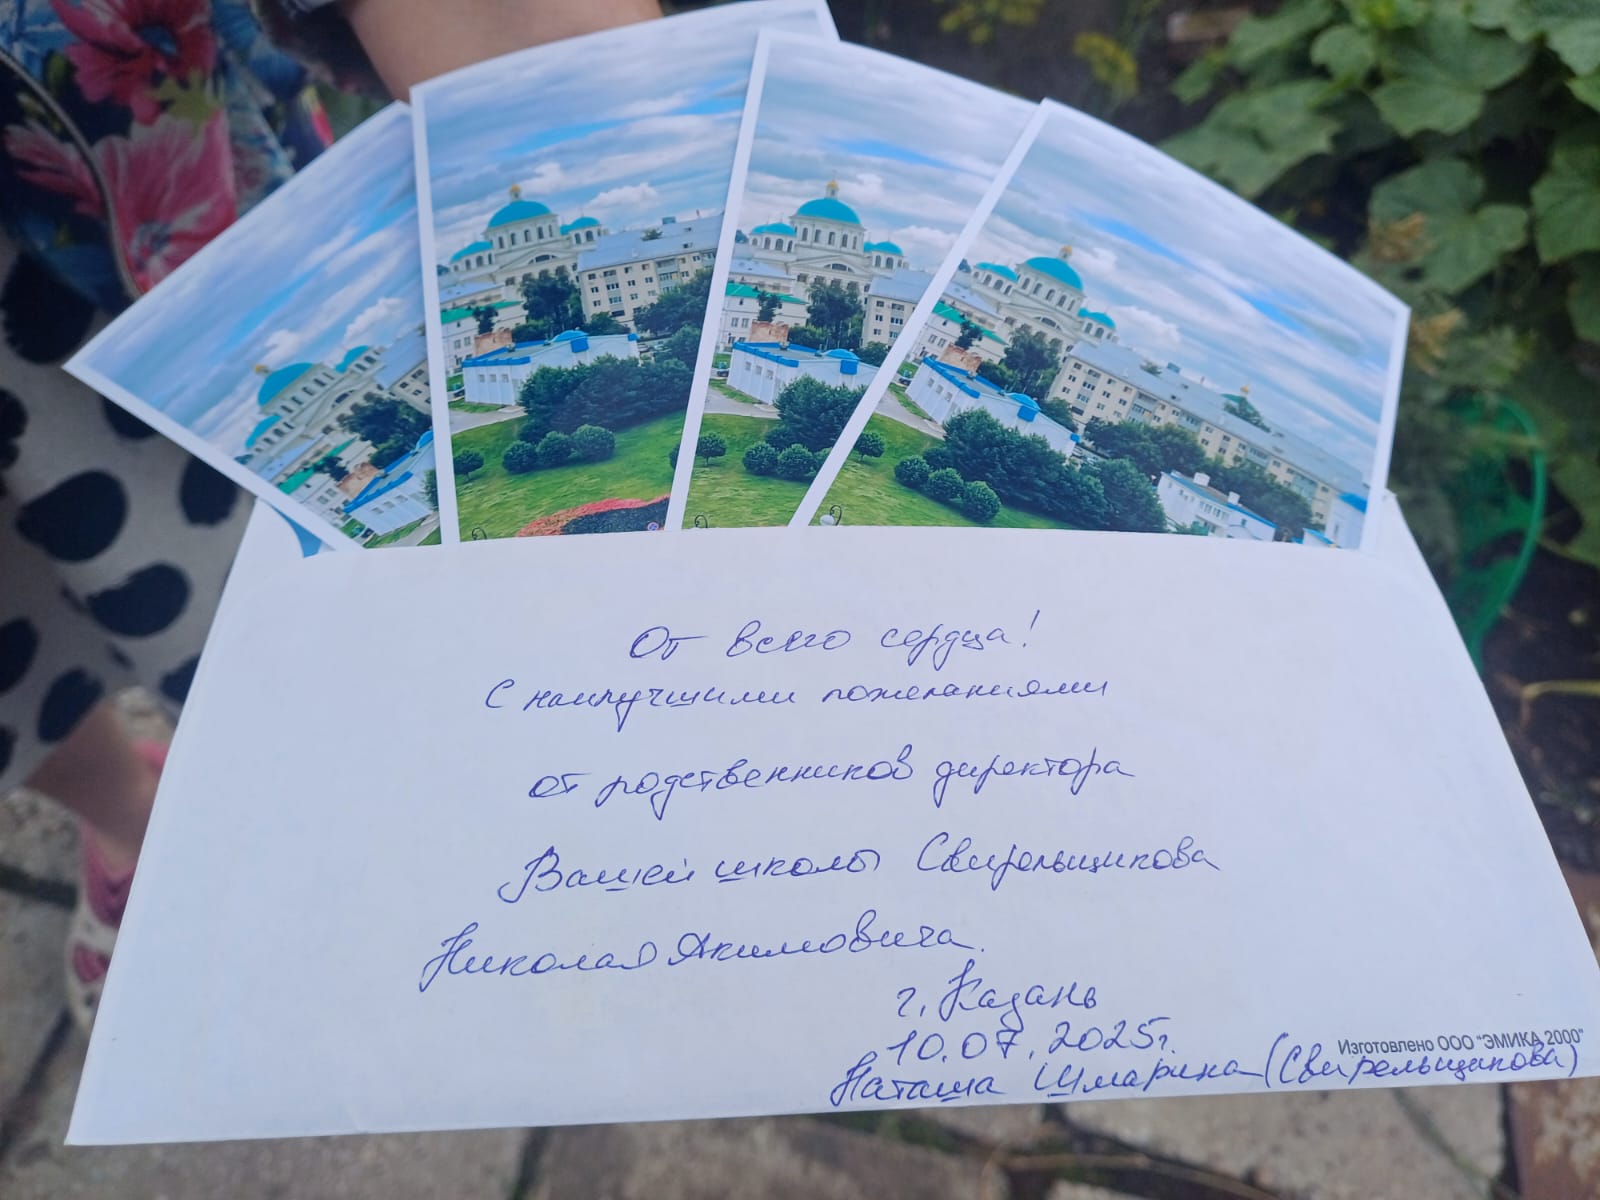 От всего сердца!
С наилучшими пожеланиями
от родственников директора
Вашей школы Свирельщикова
Николая Акимовича.
г. Казань
10.07.2025г.
Изготовлено ООО "ЭМИКА 2000"
Наташа Шмарина (Свирельщикова)